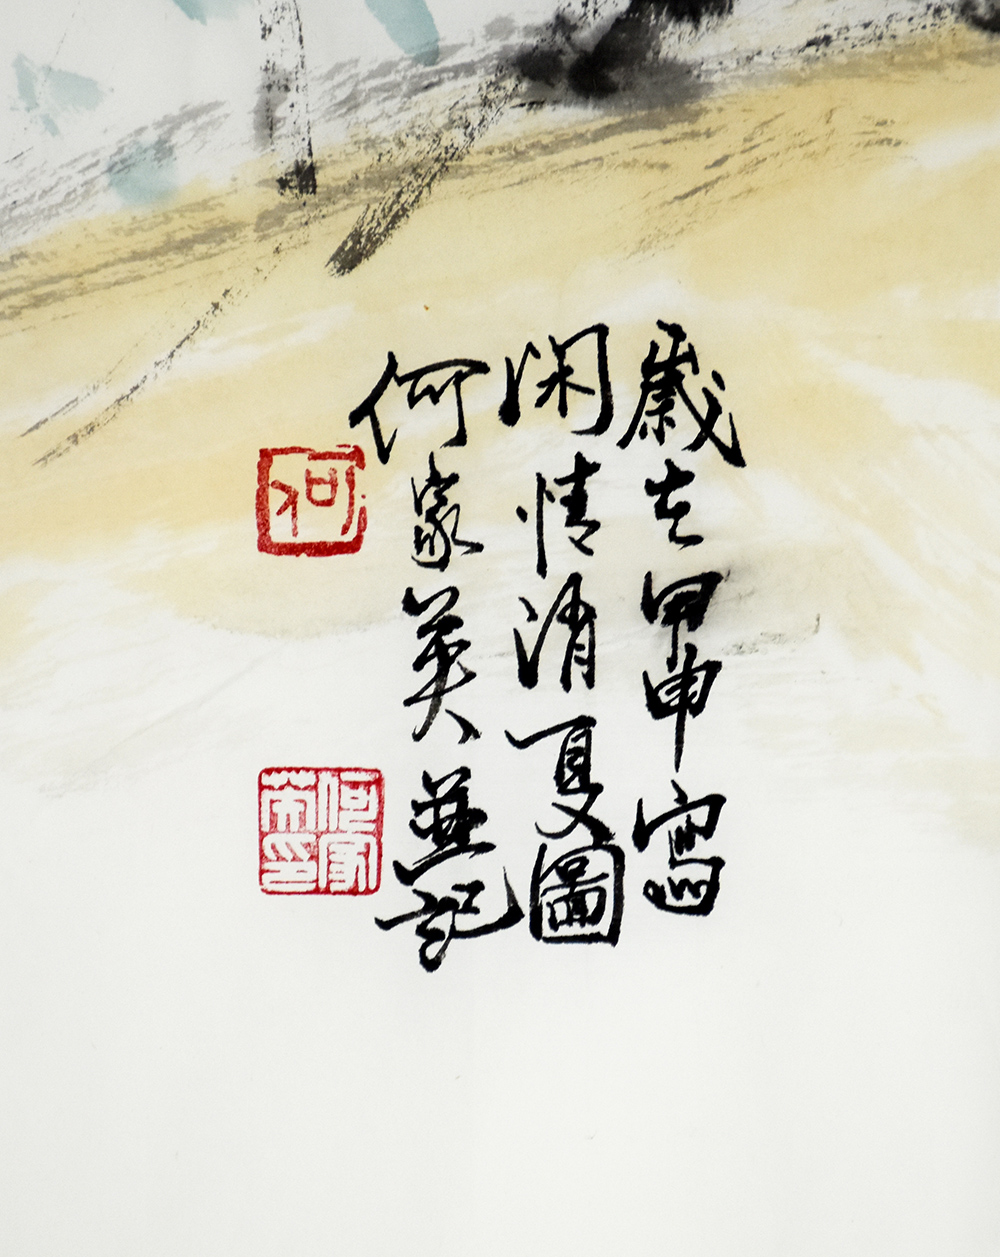 歲在甲申寫
閑情消夏圖
何家英並記
何
何家英印